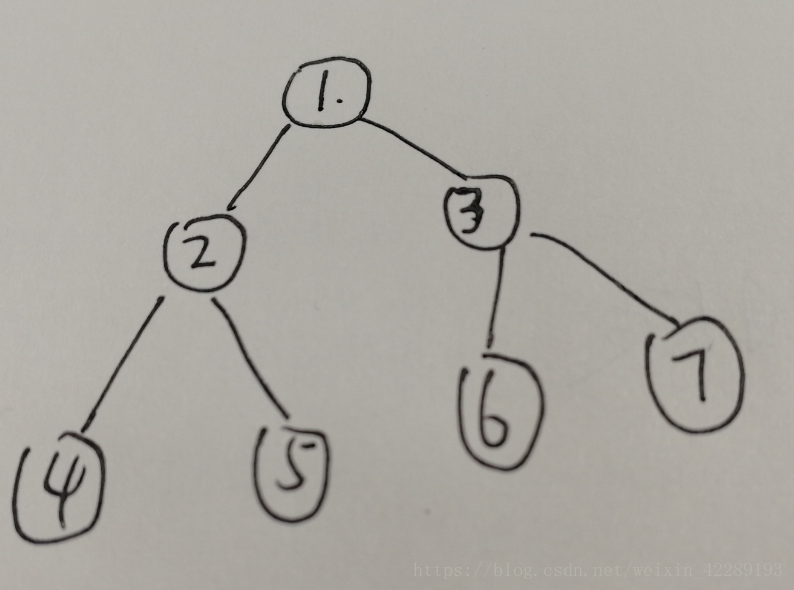 1.
2
3
4
5
6
7
https://blog.csdn.net/weixin_42289193